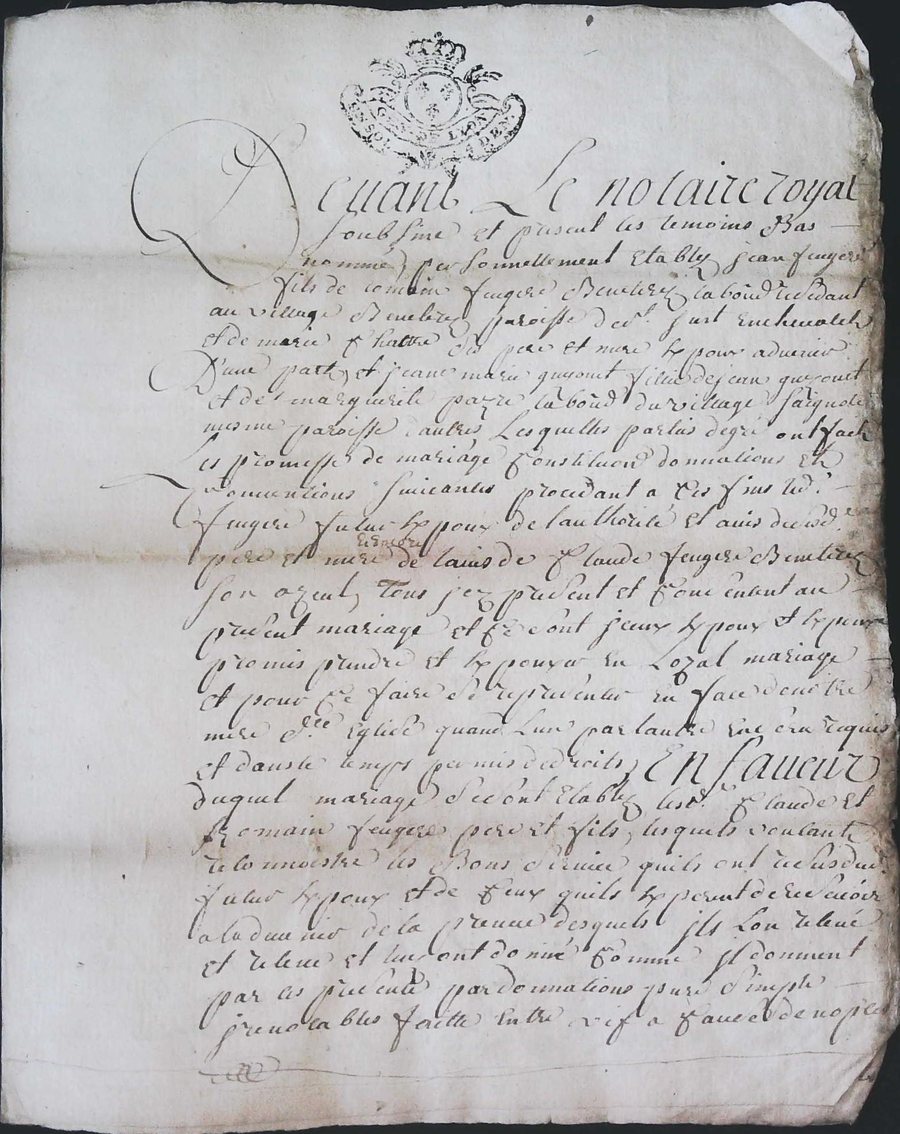 GEN DE LYON
DEN
Devant Le notaire royal
soub siné et présent les temoins Bas
nommé, personnellement Etably jean feugere
fils de romain feugere Benetiere, laboud residant
au village Benetiere paroisse de st. just
et de marie Chattre ses pere et mere Expoux advenir
D'une part, et jeane marie guyonet fille de jean guyonet
et de marguerite labôud du village
mesme paroisse dautres Lesquelles parties degré ont fact
Les promesse de mariage Constitution donnations et
Conventions suivantes procédant a Ces fins led.
feugere futur Expoux de lauthorité et avis desd.
Encore
pere et mere de lavis de Claude feugere Benetiere
son ayeul, Tous jcy présent et Consentant au
présent mariage et se sont jceux Expoux et Expouse
promis prendre et Expouser En Loyal mariage
et pour Ce faire se représenter En face de notre
mere ste Eglise quand Lun par lautre En sera requis
et dans le temps permis de droits, En faveur
duquel mariage se sont Etably lesd. Claude et
romain feugere pere et fils, lesquels voulant
reconnoistre les Bons service quils ont recus dud.
futur Expoux et de Ceux quils Esperent de recevoir
a ladvenir de la preuve desquels jls Lon relevé
et releve et luy ont donné Comme jl donnent
par ces présente par donnations pure simple
jrevocables faitte Entre vif a Cause de nopces